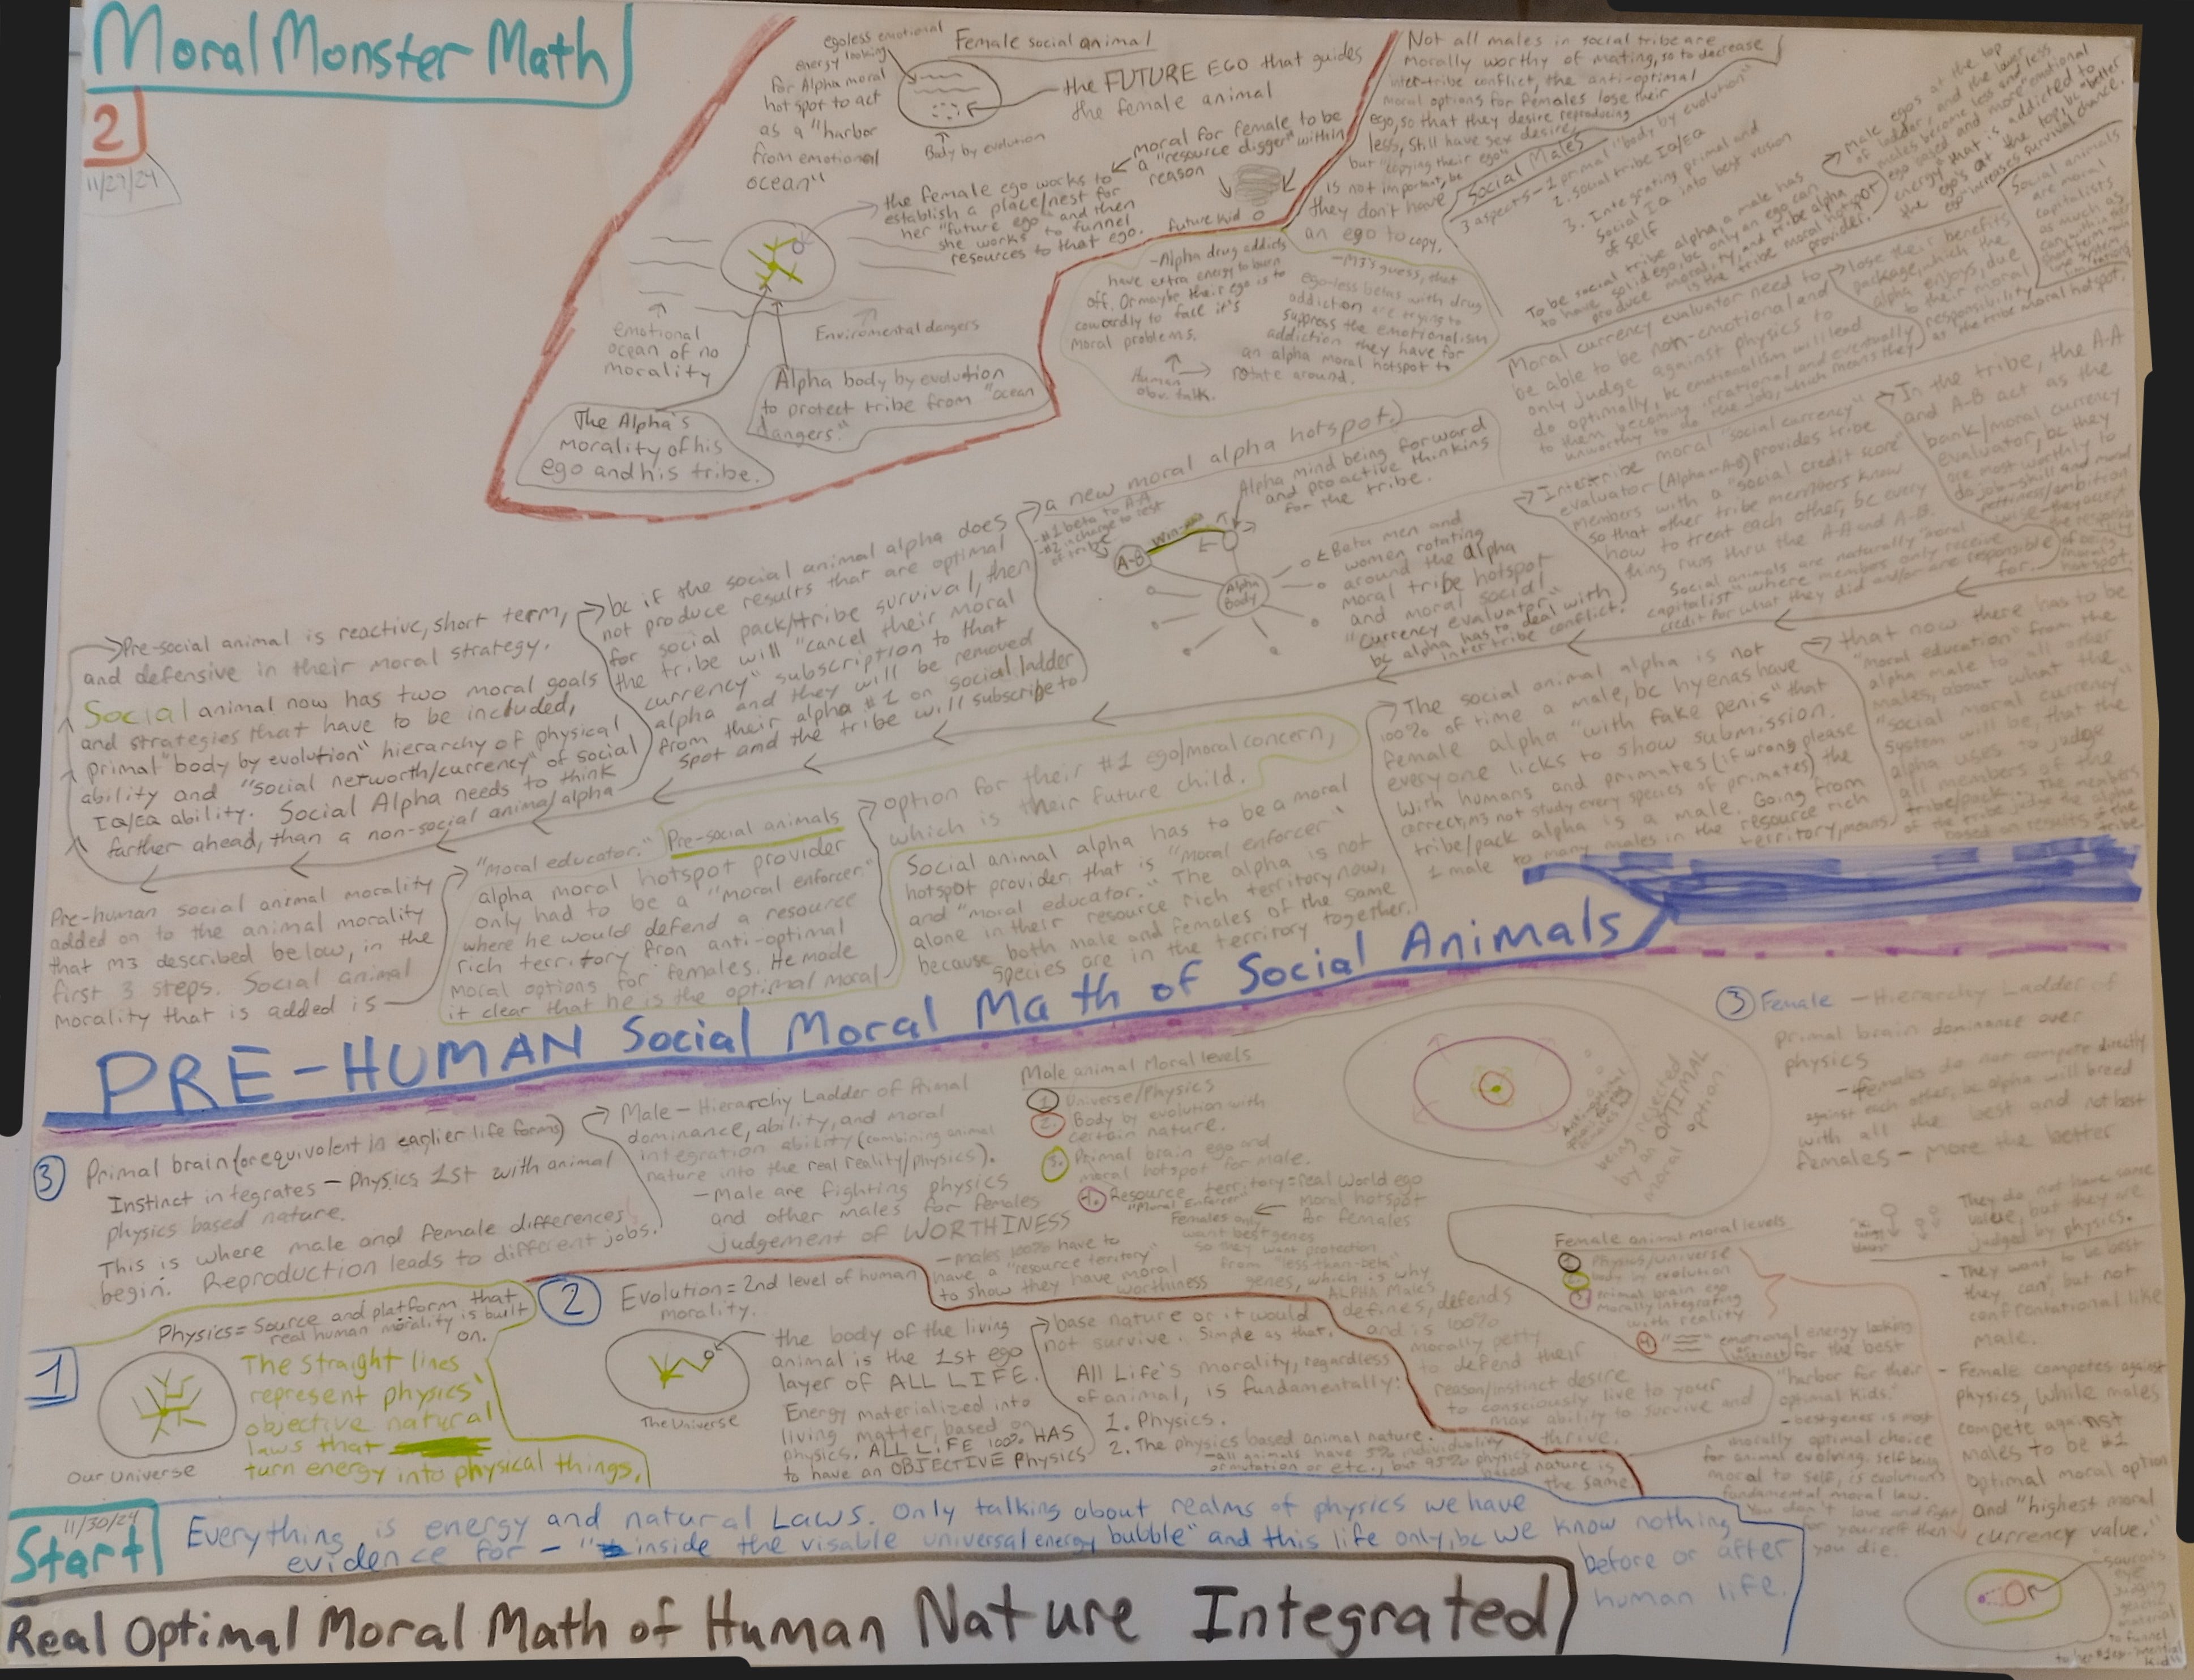 Moral Monster Math
2
11/27/24
egoless emotional
energy looking
for Alpha moral
hot spot to act
as a "harbor
from emotional
ocean"
Female social animal
the FUTURE EGO that guides
the female animal
Body by evolution
moral for female to be
a "resource digger" within
reason
future kid
the female ego works to
establish a place/nest for
her "future ego" and then
she works to funnel
resources to that ego.
emotional
ocean of no
morality
Enviromental dangers
Alpha body by evolution
to protect tribe from "ocean
dangers."
The Alpha's
morality of his
ego and his tribe.
Not all males in social tribe are
morally worthy of mating, so to decrease
inter-tribe conflict, the anti-optimal
moral options for females lose their
ego, so that they desire reproducing
less, still have sex desire,
but "copying their ego"
is not important, bc
they don't have
an ego to copy.
Social Males
3 aspects - 1 primal "body by evolution"
2. Social tribe IQ/EQ
3. Integrating primal and
Social IQ into best version
of self
To be social tribe alpha, a male has
to have solid ego, bc only an ego can
produce morality, and tribe alpha
is the tribe moral hotspot
provider.
male egos at the top
of ladder, and the lower
males become less and less
ego based and more "emotional
energy" that is addicted to
the ego's at the top, bc "better
ego increases survival chance.
Social animals
are moral
capitalists
as much as
- Alpha drug addicts
have extra energy to burn
off. Or maybe their ego is to
cowardly to face it's
moral problems.
Human
obv. talk.
- M3's guess, that
ego-less betas with drug
addiction are trying to
suppress the emotionalism
addiction they have for
an alpha moral hotspot to
rotate around.
Moral currency evaluator need to
be able to be non-emotional and
only judge against physics to
do optimally, bc emotionalism will lead
to them becoming irrational and eventually
unworthy to do the job, which means they
lose their benefits
package, which the
alpha enjoys, due
to their moral
responsibility
as the tribe moral hotspot.
Intertribe moral "social currency"
evaluator (Alpha → A-B) provides tribe
members with a "social credit score"
so that other tribe members know
how to treat each other, bc every
thing runs thru the A-A and A-B.
Social animals are naturally "moral
capitalist" where members only receive
credit for what they did and/or are responsible
for.
In the tribe, the A-A
and A-B act as the
bank/moral currency
evaluator, bc they
are most worthly to
do job-skill and moral
pettiness/ambition
wise - they accept
the responsib
of being
moral
hotspot.
a new moral alpha hotspot.)
- #1 beta to A-A
- #2 in charge to rest
of tribe
A-B
Win-win
Alpha mind being forward
and proactive thinking
for the tribe.
Alpha
Body
Beta men and
women rotating
around the alpha
moral tribe hotspot
and moral social
"currency evaluator"
bc alpha has to deal with
inter tribe conflict.
Pre-social animal is reactive, short term,
and defensive in their moral strategy.
Social animal now has two moral goals
and strategies that have to be included,
primal "body by evolution" hierarchy of physical
ability and "social networth/currency" of social
IQ/EQ ability. Social Alpha needs to think
farther ahead, than a non-social animal alpha
bc if the social animal alpha does
not produce results that are optimal
for social pack/tribe survival, then
the tribe will "cancel their moral
currency" subscription to that
alpha and they will be removed
from their alpha #1 on social ladder
spot and the tribe will subscribe to
Pre-human social animal morality
added on to the animal morality
that M3 described below, in the
first 3 steps. Social animal
morality that is added is
"moral educator." Pre-social animals
alpha moral hotspot provider
only had to be a "moral enforcer"
where he would defend a resource
rich territory from anti-optimal
moral options for females. He made
it clear that he is the optimal moral
option for their #1 ego/moral concern,
which is their future child.
Social animal alpha has to be a moral
hotspot provider, that is "moral enforcer"
and "moral educator." The alpha is not
alone in their resource rich territory now,
because both male and females of the same
species are in the territory together.
The social animal alpha is not
100% of time a male, bc hyenas have
female alpha "with fake penis" that
everyone licks to show submission.
With humans and primates (if wrong please
correct, m3 not study every species of primates) the
tribe/pack alpha is a male. Going from
1 male to many males in the resource rich
territory, means
that now there has to be
"moral education" from the
alpha male to all other
males, about what the
"social moral currency"
system will be, that the
alpha uses to judge
all members of the
tribe/pack. The members
of the tribe judge the alpha
based on results of the
tribe.
PRE-HUMAN Social Moral Math of Social Animals
3 Primal brain (or equivolent in earlier life forms)
Instinct integrates - Physics 1st with animal
physics based nature.
This is where male and female differences
begin. Reproduction leads to different jobs.
Male - Hierarchy Ladder of Primal
dominance, ability, and moral
integration ability (combining animal
nature into the real reality/physics).
- Male are fighting physics
and other males for females
judgement of WORTHINESS
- males 100% have to
have a "resource territory"
to show they have moral
worthiness
Male animal Moral levels
1 Universe/Physics
2. Body by evolution with
certain nature.
3. Primal brain ego and
moral hotspot for male.
4. Resource territory = real world ego
"Moral Enforcer" ← moral hotspot
for females
Females only
want best genes
so they want protection
from "less-than-beta"
genes, which is why
ALPHA Males
defines, defends
and is 100%
morally petty
to defend their
reason/instinct desire
to consciously live to your
max ability to survive and
thrive.
being rejected
by an OPTIMAL
moral option.
3 Female - Hierarchy Ladder of
primal brain dominance over
physics
- females do not compete directly
against each other, bc alpha will breed
with all the best and not best
females - more the better
They do not have same
value, but they are
judged by physics.
- They want to be best
they can, but not
confrontational like
male.
- Female competes against
physics, while males
compete against
males to be #1
optimal moral option
and "highest moral
currency value."
Female animal moral levels
1 Physics/universe
2 Body by evolution
3 Primal brain ego
morally integrating
with reality
4 emotional energy looking
instinct for the best
"harbor for their
optimal kids."
- best genes is most
morally optimal choice
for animal evolving. self being
moral to self, is evolution's
fundamental moral law.
You don't love and fight
for yourself then
you die.
1
Physics = Source and platform that
real human morality is built
on.
The straight lines
represent physics'
objective natural
laws that
turn energy into physical things.
Our Universe
2 Evolution = 2nd level of human
morality.
The Universe
the body of the living
animal is the 1st ego
layer of ALL LIFE.
Energy materialized into
living matter, based on
physics. ALL LIFE 100% HAS
to have an OBJECTIVE Physics
base nature or it would
not survive. Simple as that.
All Life's morality, regardless
of animal, is fundamentally:
1. Physics.
2. The physics based animal nature.
- all animals have 5% individuality
or mutation or etc., but 95% physics
based nature is
the same.
Start
11/30/24
Everything is energy and natural Laws. Only talking about realms of physics we have
evidence for - "inside the visable universal energy bubble" and this life only, bc we know nothing
before or after
human life.
Real Optimal Moral Math of Human Nature Integrated
"Sauron's
eye"
judging
genetic
material
to funnel